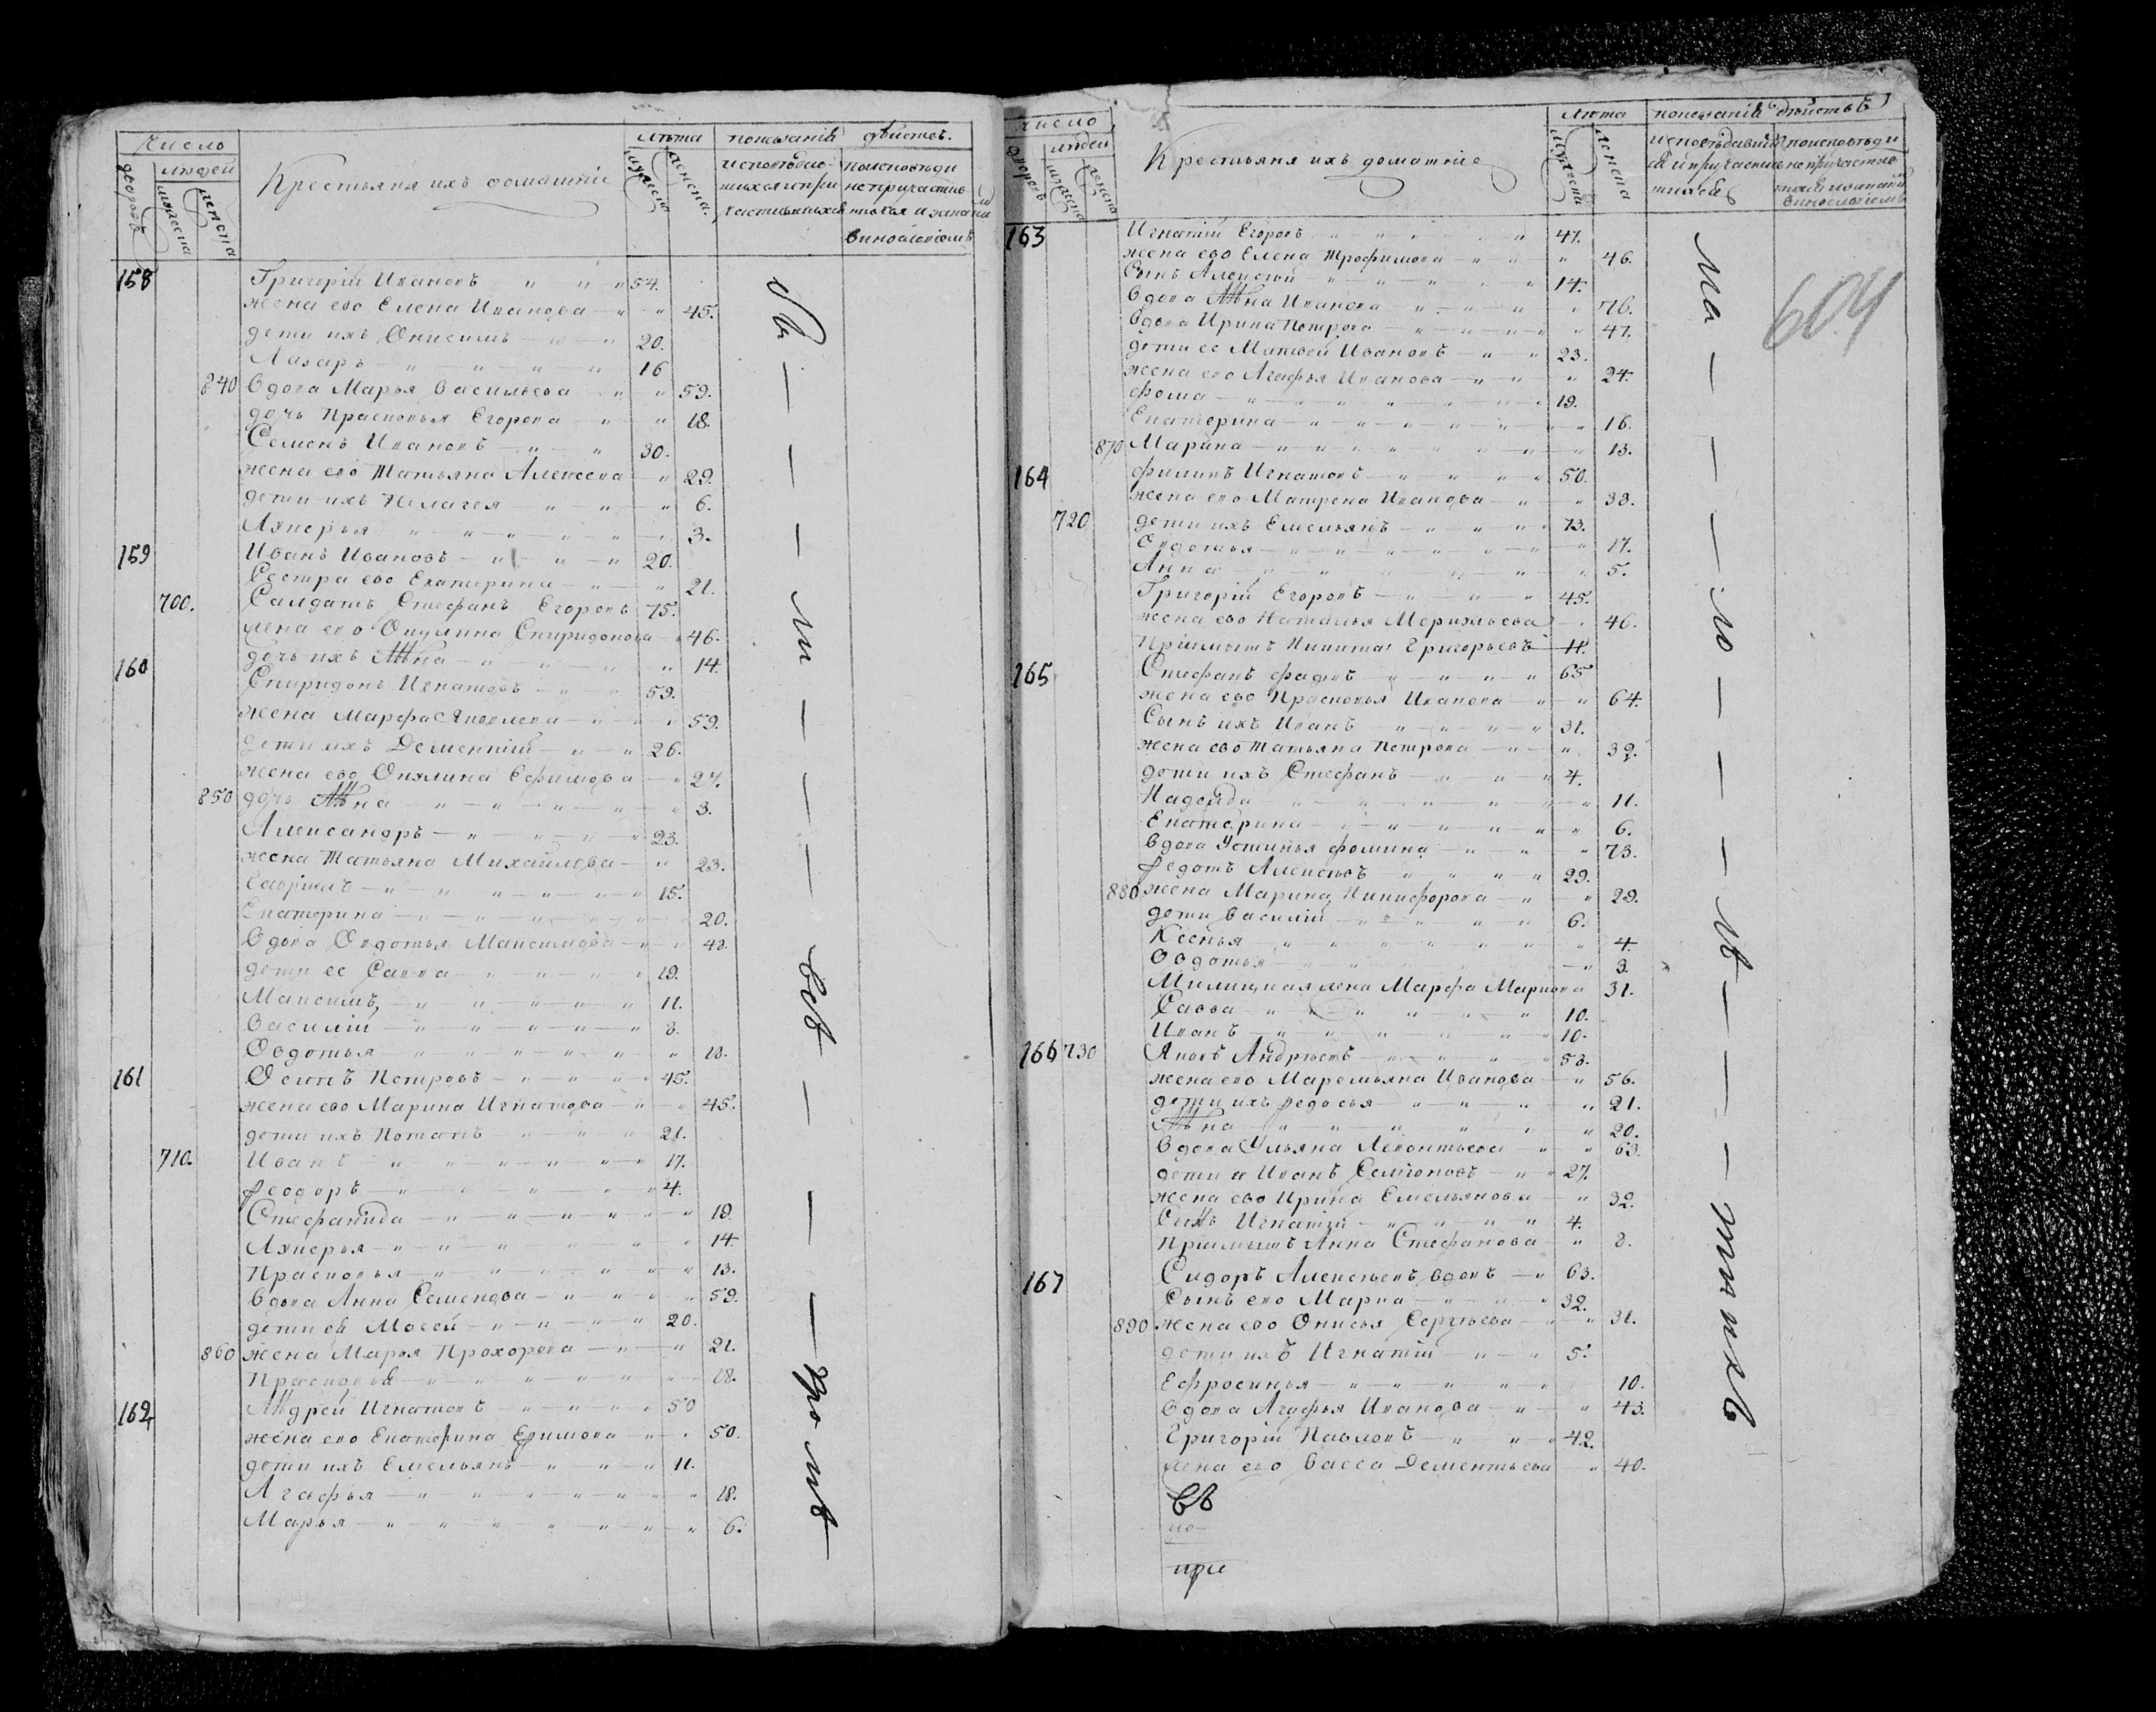 Число
людей
дворовъ
мужеска
женска
Крестьяня ихъ домашніи
лѣта
мужеска
женска.
показаніѣ дѣйств.
исповѣдав-
шихся и при
частившихся
поисповѣди
непричастив
шихся и закакимъ
винословіемъ
158 Григорій Ивановъ 54.
жена его Елена Иванова 45.
дети ихъ Онисимъ 20.
Лазарь 16
840 вдова Марья Васильева 59.
дочь Прасковья Егорова 18.
Семенъ Ивановъ 30.
жена его Татьяна Алексеева 29.
дети ихъ Пелагея 6.
Лукерья 3.
159 Иванъ Ивановъ 20.
Сестра ево Екатерина 21.
700. Салдатъ Стефанъ Егоровъ 75.
жена его Окулина Спиридонова 46.
дочь ихъ Анна 14.
160 Спиридонъ Игнатовъ 59.
жена Марфа Яковлева 59.
дети ихъ Дементий 26.
жена ево Окулина Ефимова 27.
850 дочь Анна 3.
Александръ 23.
жена Татьяна Михайлова 23.
Гаврилъ 15.
Екатерина 20.
вдова Овдотья Максимова 48.
дети ее Савва 19.
Максимъ 11.
Василій 8.
Овдотья 18.
161 Осипъ Петровъ 45.
жена ево Марина Игнатова 45.
дети ихъ Потапъ 21.
710. Иванъ 17.
Феодоръ 4.
Стефанида 19.
Лукерья 14.
Прасковья 13.
вдова Анна Семенова 59.
дети ея Мосей 20.
860 жена Марья Прохорова 21.
Прасковья 18.
162 Андрей Игнатовъ 50
жена его Екатерина Ефимова 50.
дети ихъ Емельянъ 11.
Агафья 18.
Марья 6.
ли
всѣ
число
людей
дворовъ
мужеска
женска
Крестьяня ихъ домашние
лѣта
мужеска
женска
показаніѣ дѣйствъ
исповѣдавши
ся и причастив
шихся
поисповѣди
непричастив
шихся и закакимъ
винословіемъ
604
163 Игнатій Егоровъ 47.
жена ево Елена Трофимова 46.
Сынъ Алексей 14.
вдова Анна Иванова 76.
вдова Ирина Петрова 47.
дети ее Матвей Ивановъ 23.
жена его Агафья Иванова 24.
Фома 19.
Екатерина 16.
870 Марина 13.
164 Филипъ Игнатовъ 50.
жена его Матрена Иванова 33.
720 дети ихъ Емельянъ 13.
Овдотья 17.
Анна 5.
Григорій Егоровъ 45.
жена ево Наталья 46.
Пріимышъ Никита Григорьевъ 11.
165 Стефанъ 65
жена ево Прасковья Иванова 64.
Сынъ ихъ Иванъ 31.
жена ево Татьяна Петрова 32.
дети ихъ Стефанъ 4.
Надежда 11.
Екатерина 6.
вдова Устинья Фомина 73.
Федотъ Алексѣевъ 29.
880 жена Марина Никифорова 29.
дети Василій 6.
Ксенья 4.
Овдотья 3.
Милицкая жена Марфа Маркова 31.
Савва 10.
Иванъ 10.
166 730 Яковъ Андрѣевъ 53.
жена его Маремьяна Иванова 56.
дети ихъ Федосья 21.
Анна 20.
вдова Ульяна Леонтьева 63.
дети Иванъ Семионовъ 27.
жена ево Ирина Емельянова 32.
Сынъ Игнатій 4.
Пріимышъ Анна Стефанова 8.
167 Сидоръ Алексѣевъ вдовъ 63.
Сынъ его Марка 32.
890 жена ево Онисья Сергѣева 31.
дети ихъ Игнатій 5.
Ефросинья 10.
вдова Агафья Иванова 43.
Григорій Павловъ 42.
жена его Васса Дементьева 40.
ма
лѣ
тнихъ
при